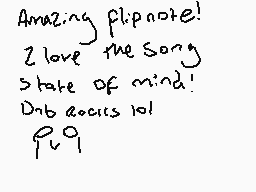 Amazing flipnote!
I love the song
state of mind!
Dnb rocks lol